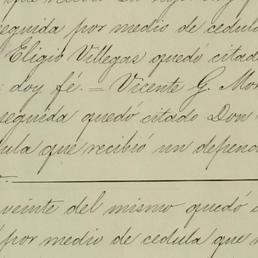 seguida por medio de cedula
Eligio Villegas quedó citado
doy fé. = Vicente G. Mor
seguida quedó citado Don
ula que recibió un depend
veinte del mismo quedó
por medio de cedula que